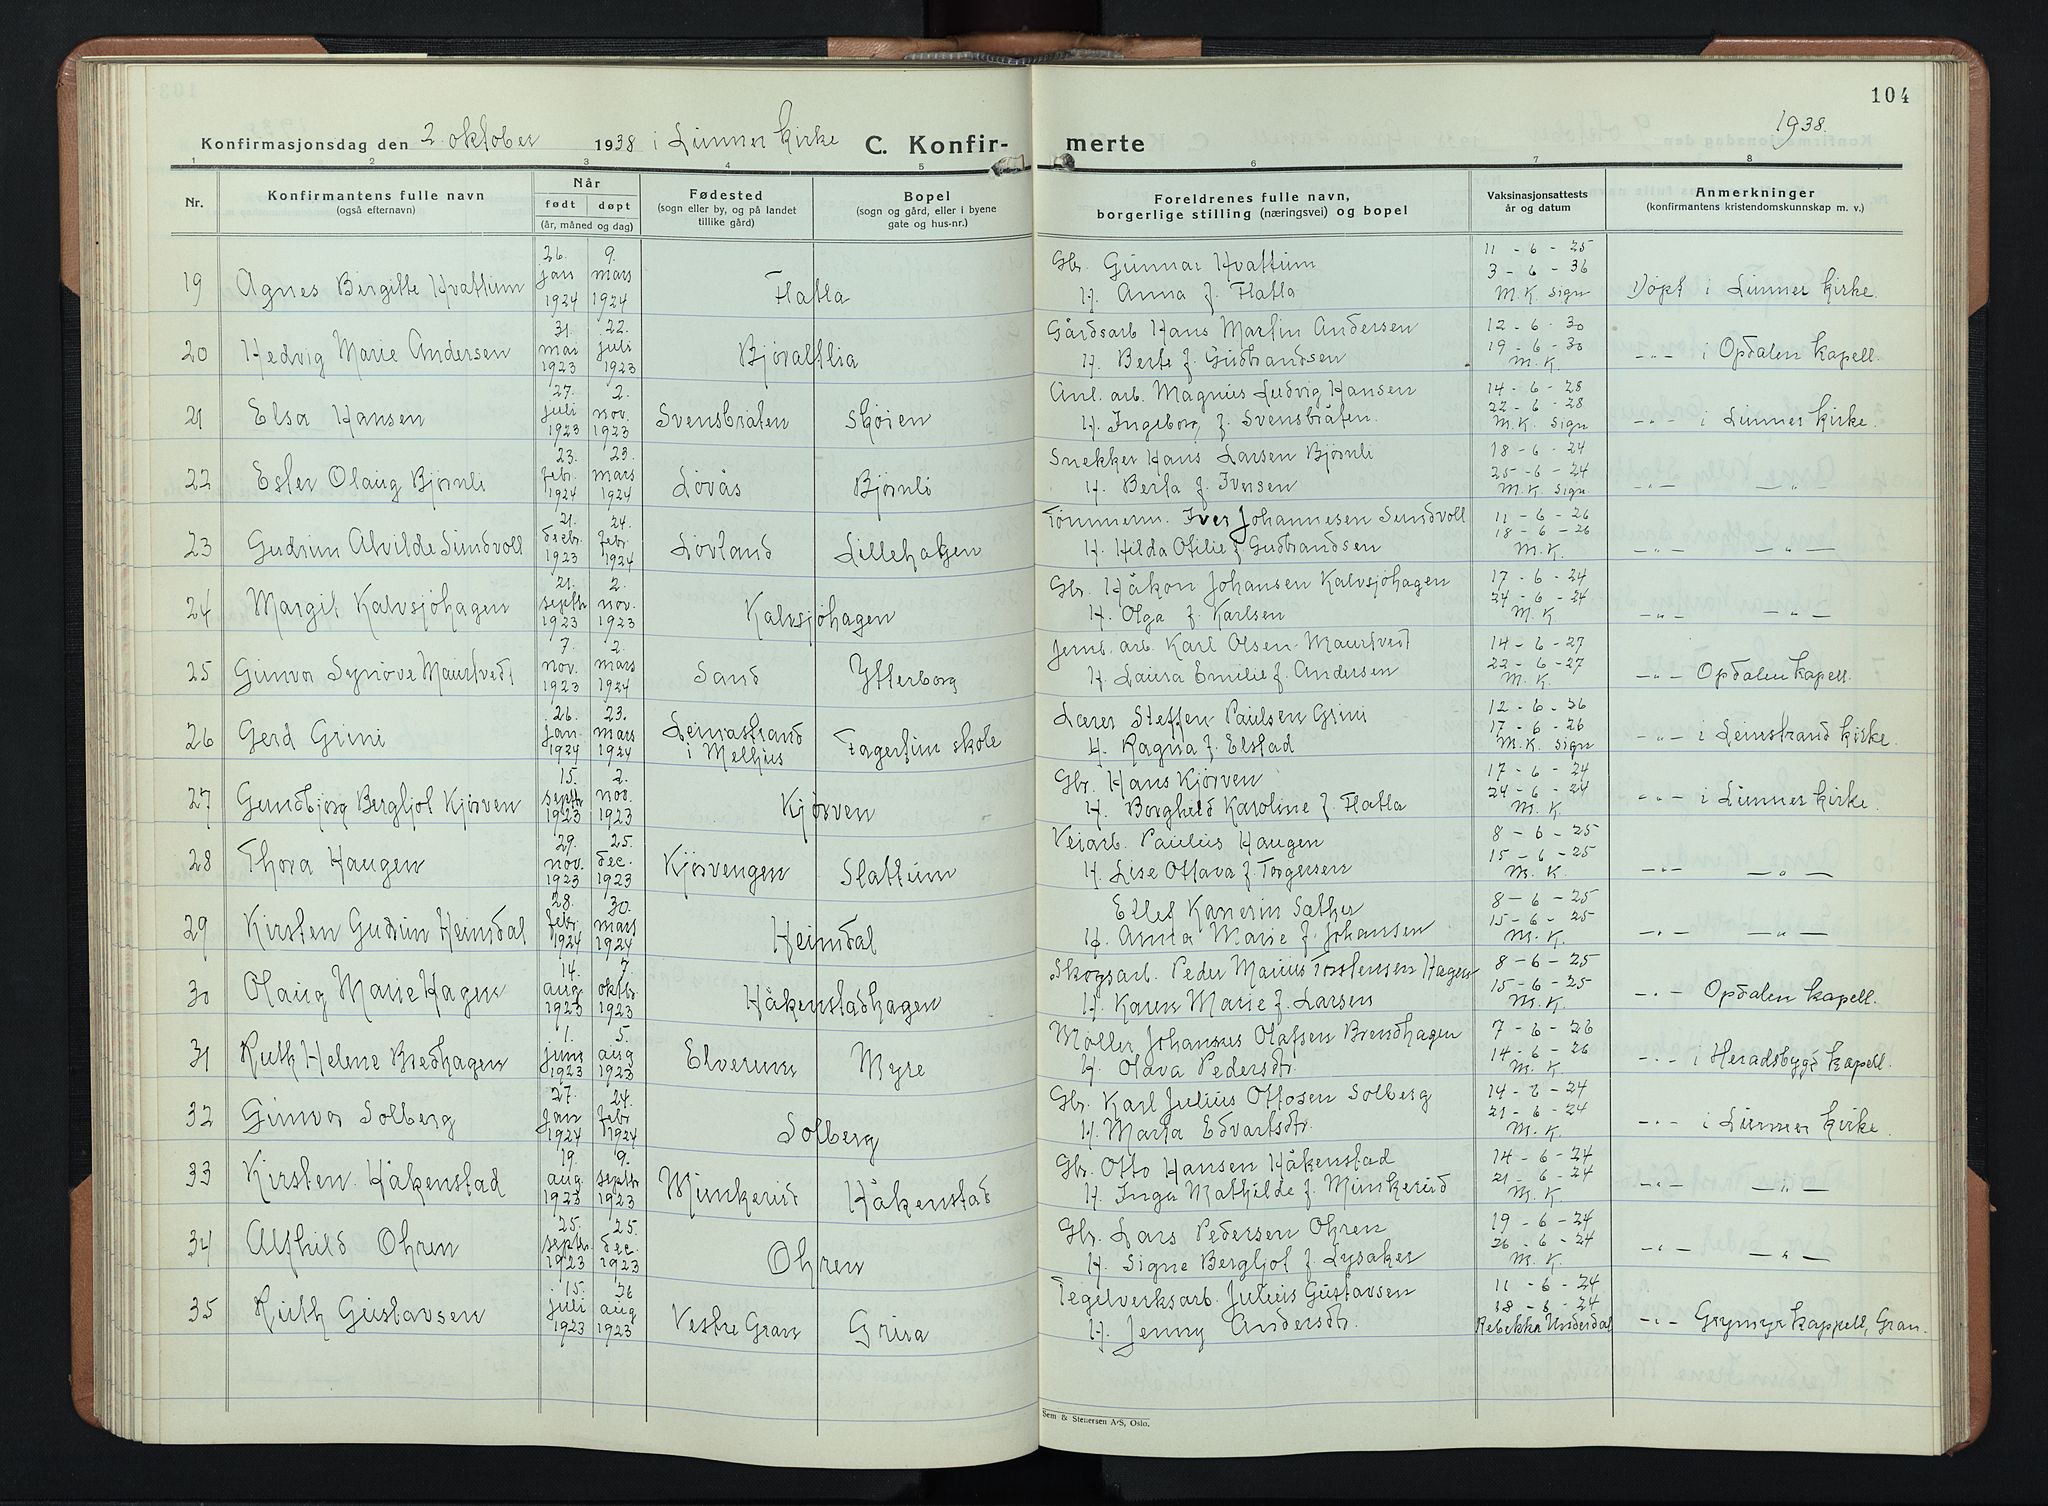 104
Konfirmasjonsdag den 2. oktober 1938 i Lunner kirke C. Konfir-
merte 1938.
1 2 3 4 5 6 7 8
Nr. Konfirmantens fulle navn (også efternavn) Når født døpt (år, måned og dag) Fødested (sogn eller by, og på landet tillike gård) Bopel (sogn og gård, eller i byene gate og hus-nr.) Foreldrenes fulle navn, borgerlige stilling (næringsvei) og bopel Vaksinasjonsattests år og datum Anmerkninger (konfirmantens kristendomskunnskap m. v.)
19 Agnes Bergitte Hvattum 26. jan 1924 9. mars 1924 Flatla Gbr. Gunnar Hvattum H. Anna f. Flatla 11-6-25 3-6-36 M.K. sign Døpt i Lunner kirke.
20 Hedvig Marie Andersen 31. mai 1923 22. juli 1923 Bjøraltlia Gårdsarb Hans Martin Andersen H. Berte f. Gudbrandsen 12-6-30 19-6-30 M.K. -"- i Opdalen kapell.
21 Elsa Hansen 27. juli 1923 2. nov. 1923 Svensbråten Skøien Anl. arb. Magnus Ludvig Hansen H. Ingeborg f. Svensbråten. 14-6-28 22-6-28 M.K. sign -"- i Lunner kirke.
22 Ester Olaug Bjørnli 23. febr. 1924 23. mars 1924 Lovås Bjørnli Snekker Hans Larsen Bjørnli H. Berta f. Iversen 18-6-24 25-6-24 M.K. sign -"- -"-
23 Gudrun Alvilde Sundvoll 21. decbr. 1923 24. febr. 1924 Lovland Lillehagen Tømmerm. Iver Johannesen Sundvoll H. Hilda Otilie f. Gudbrandsen 11-6-26 18-6-26 M.K. -"- -"-
24 Margit Kalvsjöhagen 21. septbr 1923 2. nov. 1923 Kalvsjöhagen Gbr. Håkon Johansen Kalvsjöhagen H. Olga f. Karlsen 17-6-24 24-6-24 M.K. -"- -"-
25 Gunvor Synøve Maurtvedt 7. nov. 1923 2. mars 1924 Sand Ytterborg Jernb. arb. Karl Olsen Maurtvedt H. Laura Emilie f. Andersen 14-6-27 22-6-27 M.K. -"- Opdalen kapell.
26 Gerd Grini 26. jan. 1924 23. mars 1924 Leinstrand i Melhus Fagertun skole Lærer Steffen Paulsen Grini H. Ragna f. Elstad 12-6-36 17-6-26 M.K. sign -"- i Leinstrand kirke.
27 Gundbjørg Bergljot Kjørven 15. septbr 1923 2. nov. 1923 Kjørven Gbr. Hans Kjørven H. Borghild Karoline f. Flatla 17-6-24 24-6-24 M.K. -"- i Lunner kirke.
28 Thora Haugen 29. nov. 1923 25. dec. 1923 Kjørvengen Slattum Veiarb. Paulus Haugen H. Lise Ottava f. Torgersen 8-6-25 15-6-25 M.K. -"- -"-
29 Kirsten Gudrun Heimdal 28. febr. 1924 30. mars 1924 Heimdal Ellef Kanerin Sæther H. Anna Marie f. Johansen 8-6-25 15-6-25 M.K. -"- -"-
30 Olaug Marie Hagen 14. aug. 1923 7. oktbr 1923 Håkenstadhagen Skogsarb. Peder Marius Torstensen Hagen H. Karen Marie f. Larsen 8-6-25 15-6-25 M.K. -"- Opdalen kapell.
31 Ruth Helene Bredhagen 1. juni 1923 5. aug 1923 Elverum Myre Møller Johannus Olafsen Brendhagen H. Olava Pedersdtr. 7-6-26 14-6-26 M.K. -"- i Heradsbygd kapell.
32 Gunvor Solberg 27. jan 1924 24. febr 1924 Solberg Gbr. Karl Julius Ottosen Solberg H. Marta Edvartsdtr. 14-6-24 21-6-24 M.K. -"- i Lunner kirke.
33 Kirsten Håkenstad 19. aug. 1923 9. septbr 1923 Munkerud Håkenstad Gbr. Otto Hansen Håkenstad H. Inga Mathilde f. Munkerud 14-6-24 21-6-24 M.K. -"- -"-
34 Alfhild Ohren 25. septbr. 1923 25. dec. 1923 Ohren Gbr. Lars Pedersen Ohren H. Signe Bergljot f. Lysaker 19-6-24 26-6-24 M.K. -"- -"-
35 Ruth Gustavsen 15. juli 1923 26 aug 1923 Vestre Gran Grina Teglverksarb. Julius Gustavsen H. Jenny Andersdtr. 11-6-24 18-6-24 Rebekka Underdal -"- Grymyr kappell, Gran.
Sem & Stenersen A/S, Oslo.